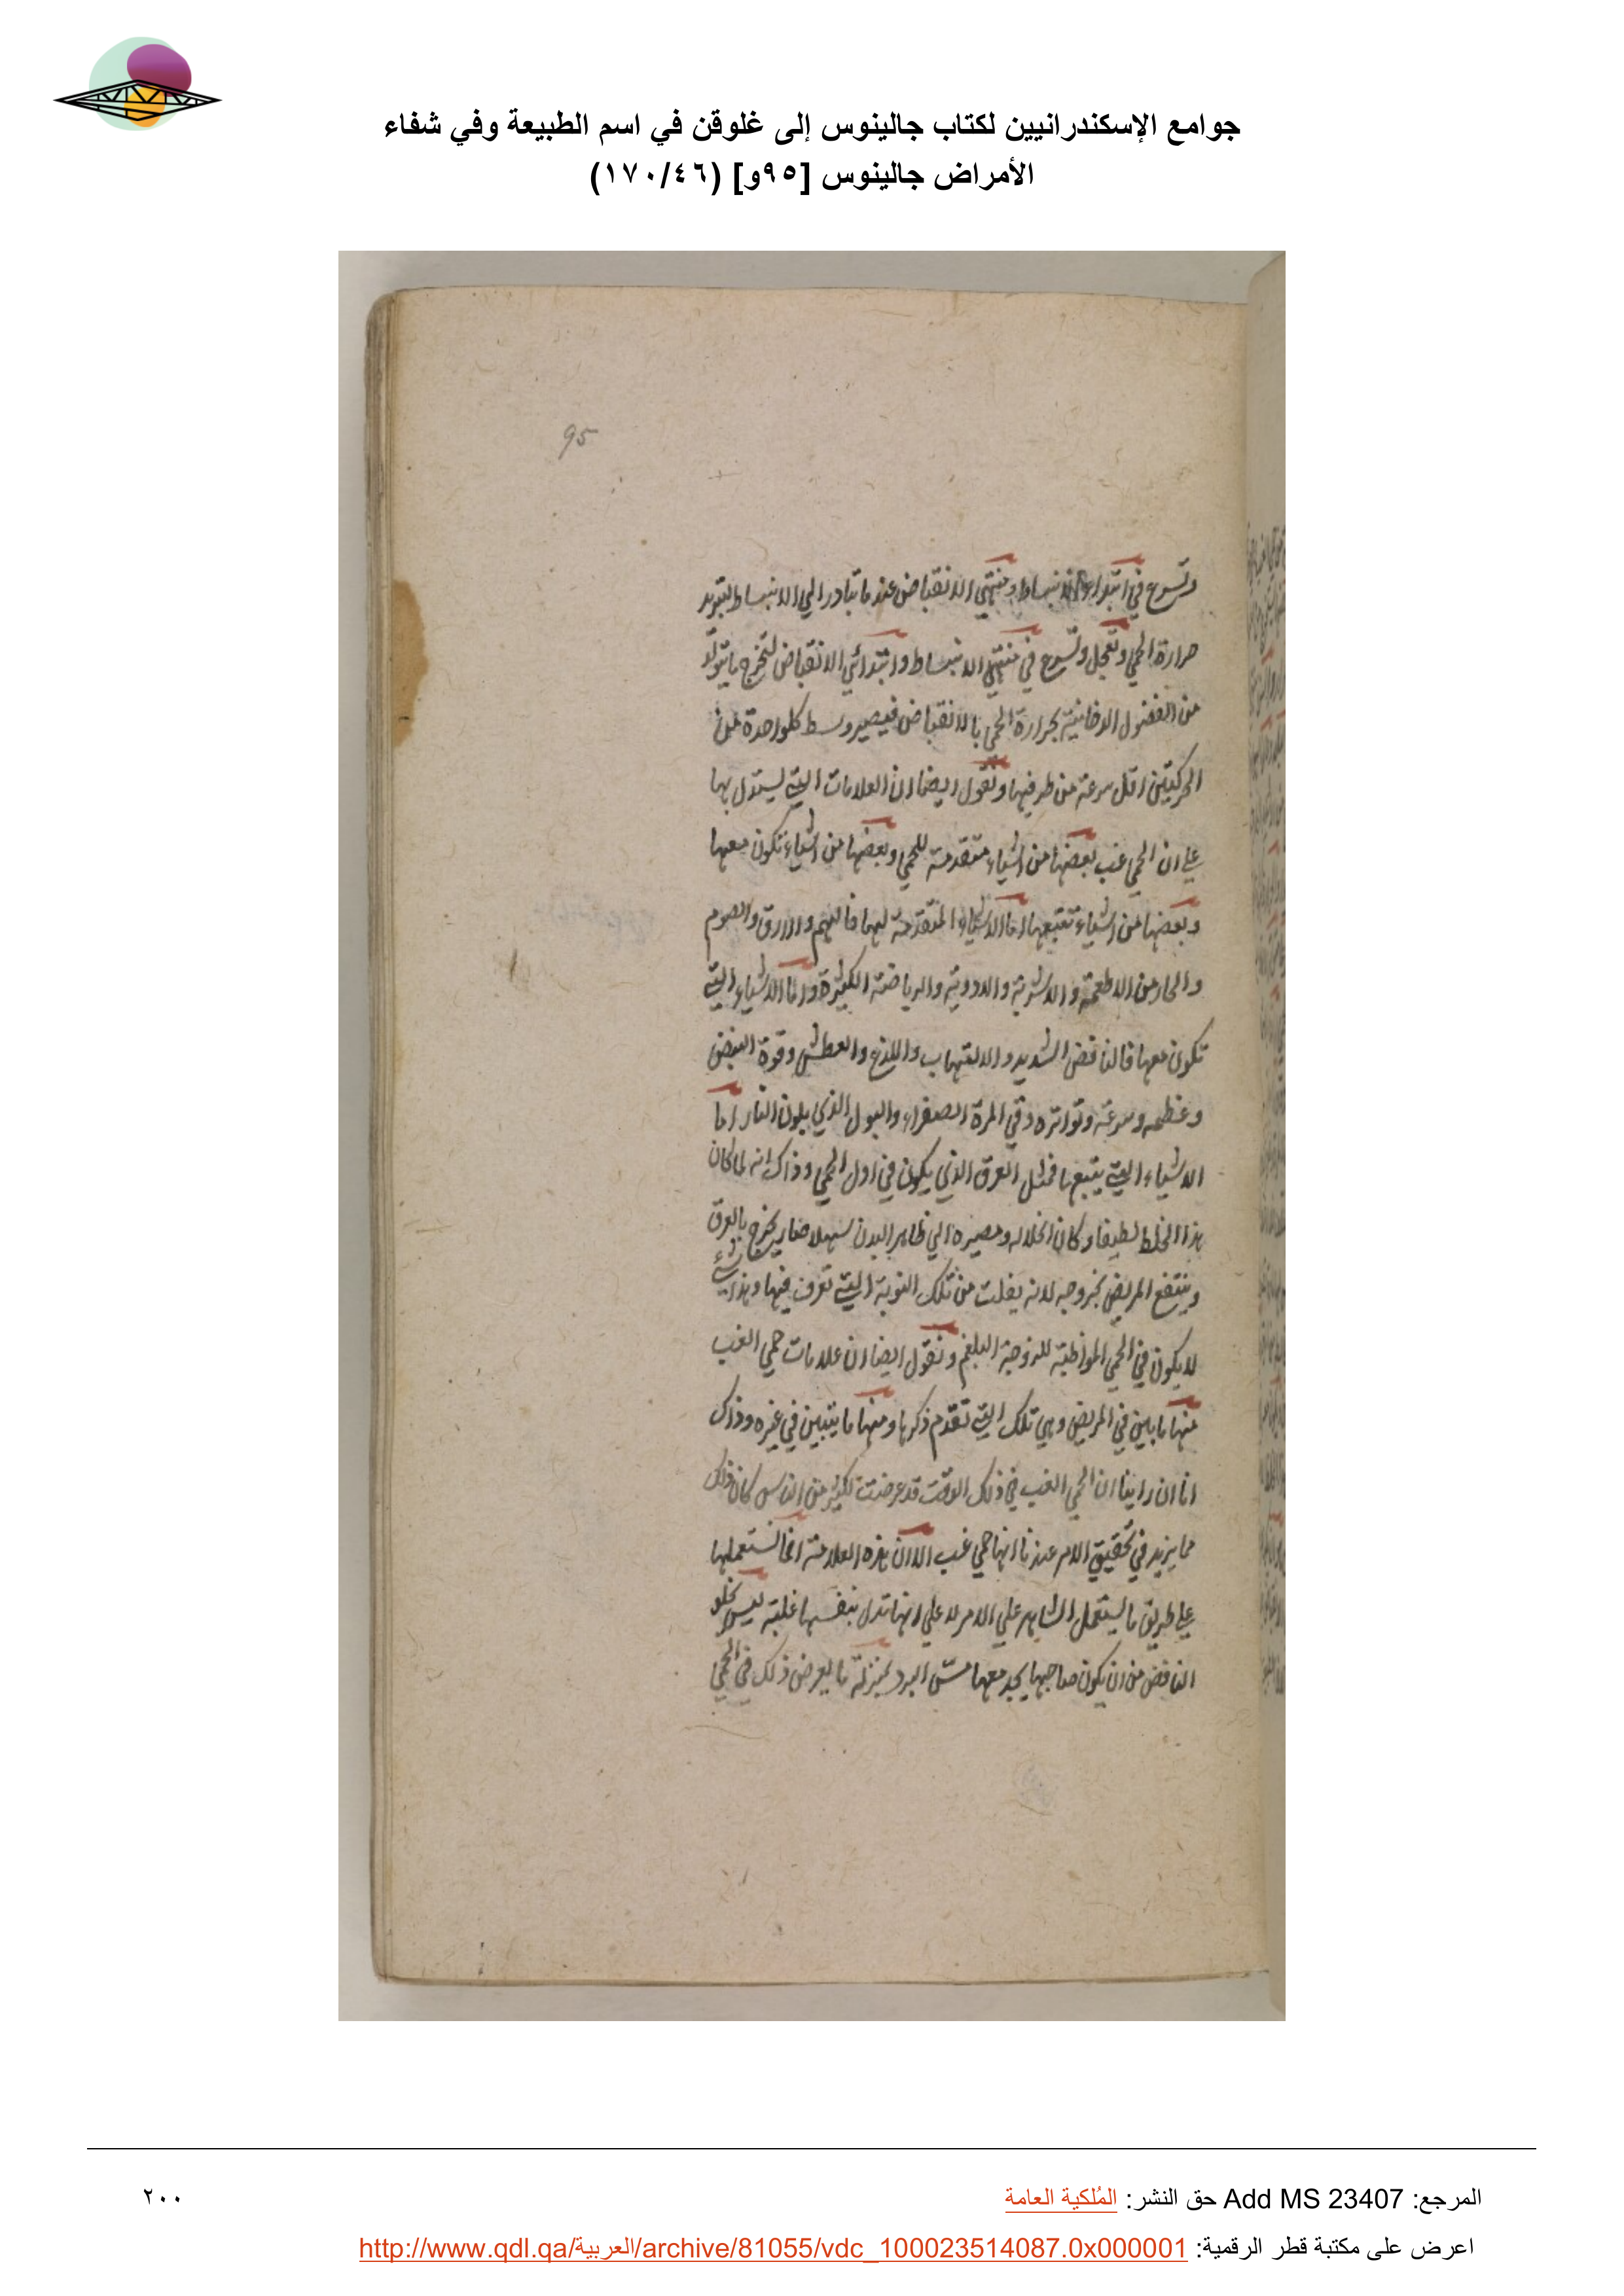 جوامع الإسكندرانيين لكتاب جالينوس إلى غلوقن في اسم الطبيعة وفي شفاء
الأمراض جالينوس [٩٥و] (١٧٠/٤٦)
95
وتسرع في ابتداء الانبساط ومنتهي الانقباض عند ما تبادر الي الانبساط لتبريد
حرارة الحمي وتعجل وتسرع في منتهي الانبساط وابتدائي الانقباض لتخرج ما يتولد
من الفضول الدخانية بحرارة الحمي بالانقباض فيصير وسط كلواحدة من
الحركتين اقل سرعة من طرفيها ونقول ايضا ان العلامات التي يستدل بها
علي ان الحمي غب بعضها من اشياء متقدمة للحمي وبعضها من اشياء تكون معها
وبعضها من اشياء تتبعها اما الاشياء المتقدمة لها فالهم والارق والصوم
والحار من الاطعمة والاشربة والادوية والرياضة الكثيرة واما الاشياء التي
تكون معها فالنافض الشديد والالتهاب واللذع والعطش وقوة النبض
وعظمه وسرعته وتواتره وقي المرة الصفراء والبول الذي بلون النار اما
الاشياء التي يتبعها فمثل العرق الذي يكون في اول الحمي وذاك انه لما كان
هذا الخلط لطيفا وكان انحلاله ومصيره الي ظاهر البدن سهلا صار يخرج بالعرق
وينتفع المريض بخروجه لانه يفلت من تلك النوبة التي تعرق فيها وهذا شيء
لا يكون في الحمي المواظبة للزوجة البلغم ونقول ايضا ان علامات حمي الغب
منها ما يبين في المريض وهي تلك التي تقدم ذكرها ومنها ما يتبين في غيره وذاك
انا ان راينا ان الحمي الغب في ذلك الوقت قد عرضت لكثير من الناس كان ذلك
مما يزيد في تحقيق الامر عندنا انها حمي غب الا ان هذه العلامة انما نستعملها
علي طريق ما يستعمل الشاهد علي الامر لا علي انها تدل بنفسها غلبة ليس يخلو
النافض من ان يكون صاحبها يجد معها مس البرد بمنزلة ما يعرض ذلك في الحمي
المرجع: Add MS 23407 حق النشر: المُلكية العامة
٢٠٠
اعرض على مكتبة قطر الرقمية: http://www.qdl.qa/العربية/archive/81055/vdc_100023514087.0x000001